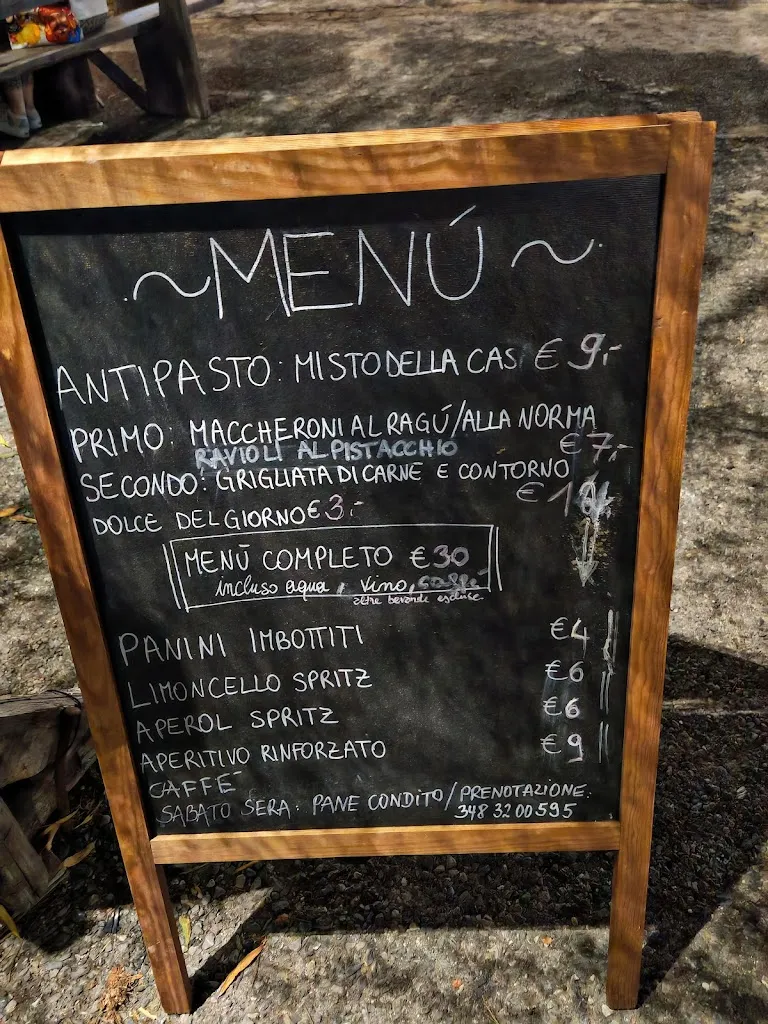 ~MENÚ~
ANTIPASTO: MISTO DELLA CAS € 9,-
PRIMO: MACCHERONI AL RAGÚ/ALLA NORMA
RAVIOLI AL PISTACCHIO € 7,-
SECONDO: GRIGLIATA DI CARNE E CONTORNO
€
DOLCE DEL GIORNO € 3,-
MENÙ COMPLETO €30
incluso aqua, vino, caffè
altre bevande escluse
PANINI IMBOTTITI €4
LIMONCELLO SPRITZ €6
APEROL SPRITZ €6
APERITIVO RINFORZATO €9
CAFFÈ
SABATO SERA: PANE CONDITO/PRENOTAZIONE:
348 3200595